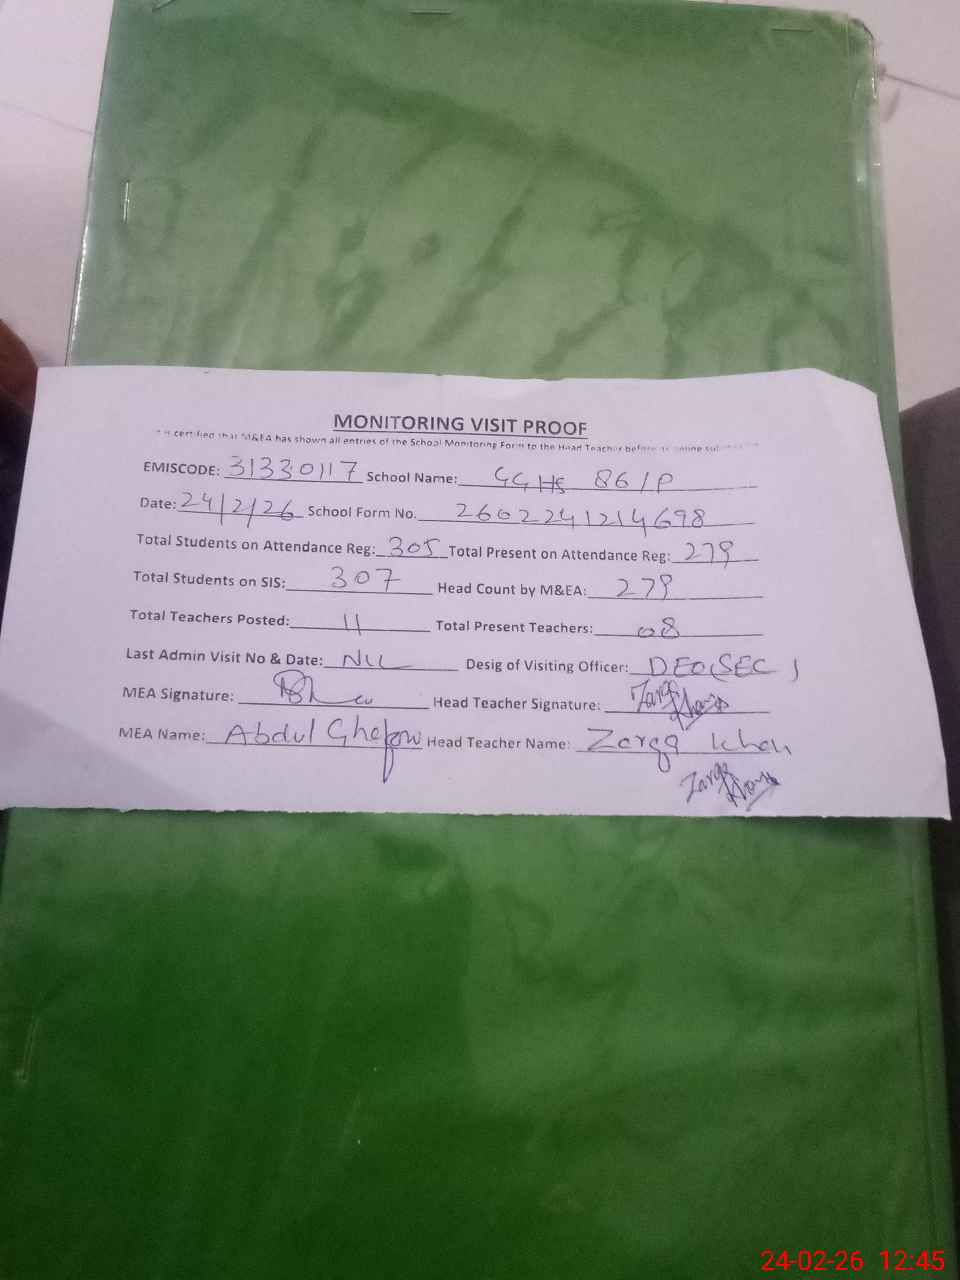 MONITORING VISIT PROOF
is certified that M&EA has shown all entries of the School Monitoring Form to the Head Teacher before its online
EMISCODE: 31330117 School Name: GGHS 86/P
Date: 24/2/26 School Form No. 2602241214698
Total Students on Attendance Reg: 305 Total Present on Attendance Reg: 279
Total Students on SIS: 307 Head Count by M&EA: 279
Total Teachers Posted: 11 Total Present Teachers: 08
Last Admin Visit No & Date: NIL Desig of Visiting Officer: DEO(SEC)
MEA Signature: Head Teacher Signature: Zarqa Khan
MEA Name: Abdul Ghafow Head Teacher Name: Zarqa Khan
Zarqa Khan
24-02-26 12:45